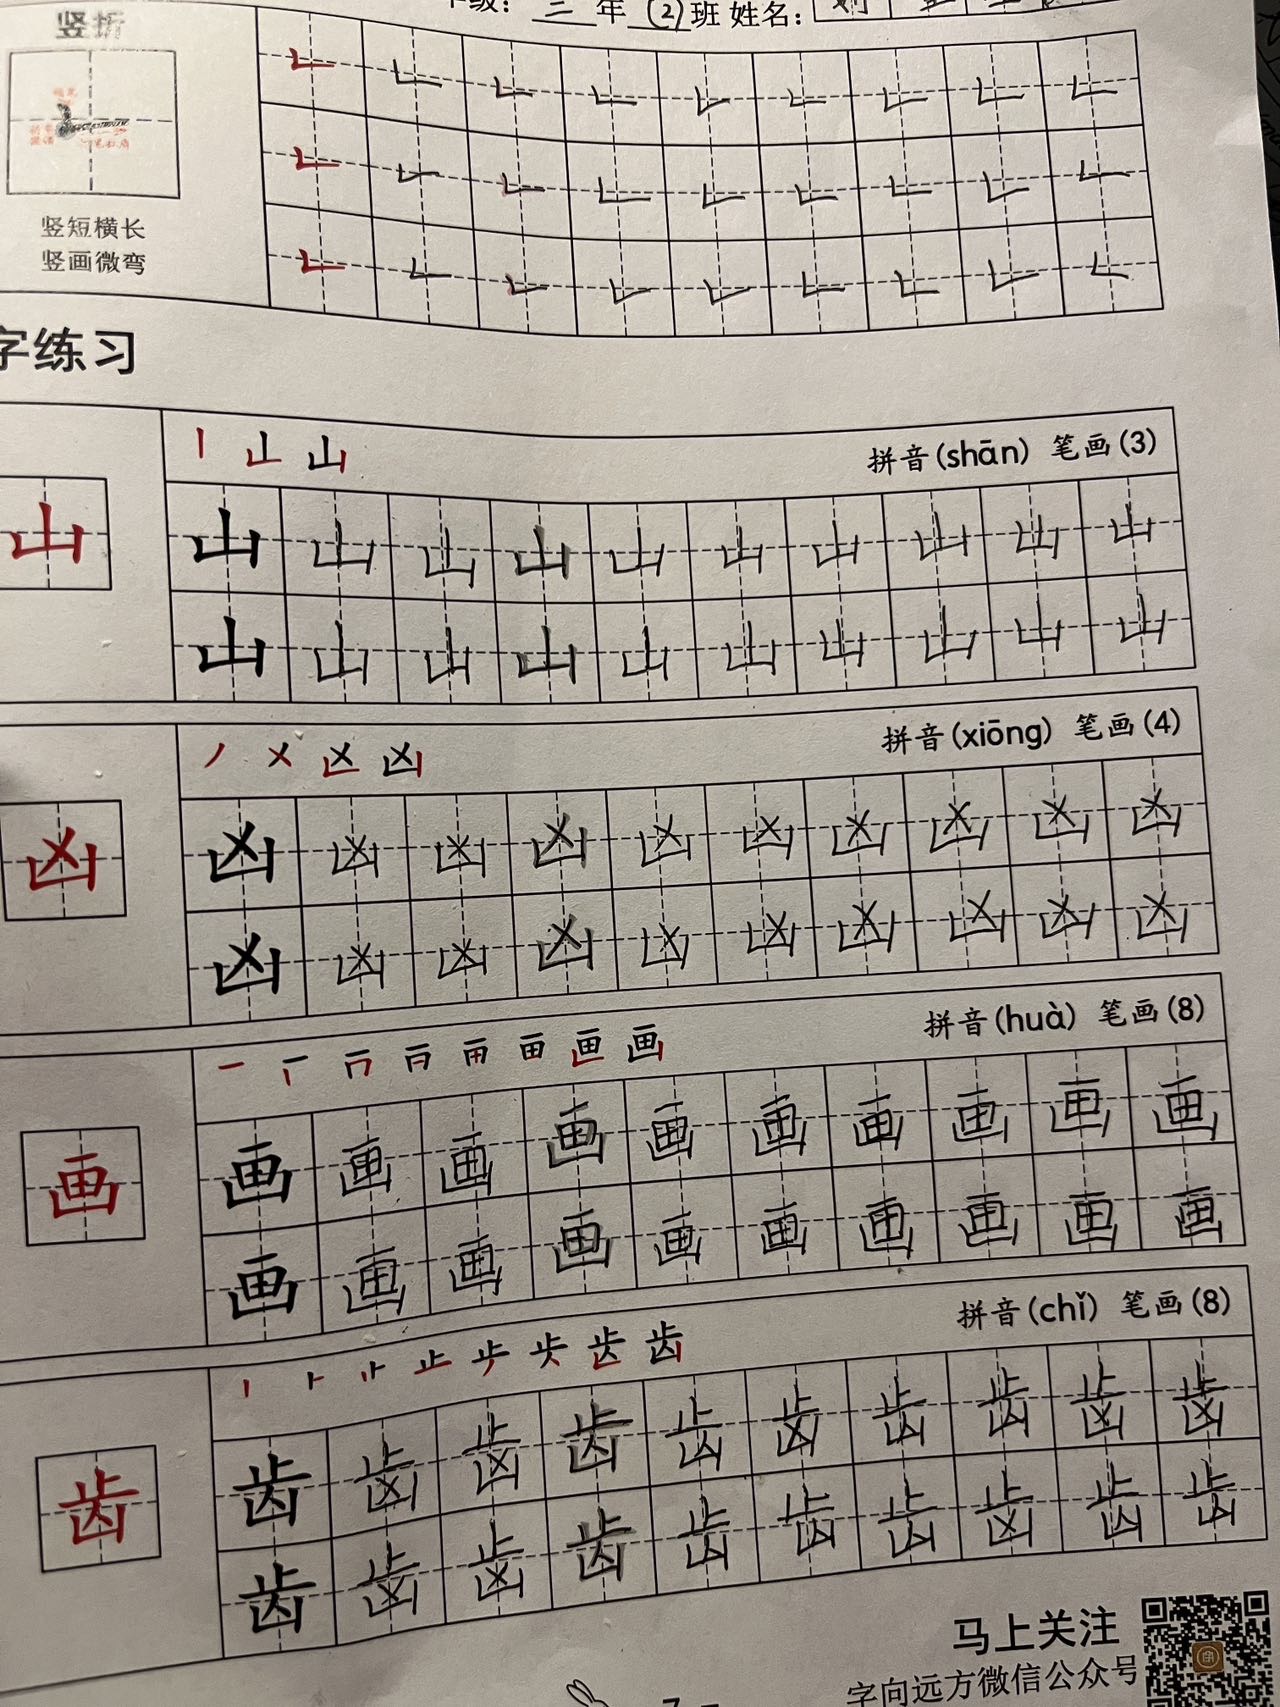 年级：三年②班 姓名：刘
竖折
竖短横长
竖画微弯
字练习
拼音(shān) 笔画(3)
山
山 山 山 山 山 山 山 山 山 山
山 山 山 山 山 山 山 山 山 山
拼音(xiōng) 笔画(4)
凶
凶 凶 凶 凶 凶 凶 凶 凶 凶 凶
凶 凶 凶 凶 凶 凶 凶 凶 凶 凶
拼音(huà) 笔画(8)
画
画 画 画 画 画 画 画 画 画 画
画 画 画 画 画 画 画 画 画 画
拼音(chǐ) 笔画(8)
齿
齿 齿 齿 齿 齿 齿 齿 齿 齿 齿
齿 齿 齿 齿 齿 齿 齿 齿 齿 齿
马上关注
字向远方微信公众号